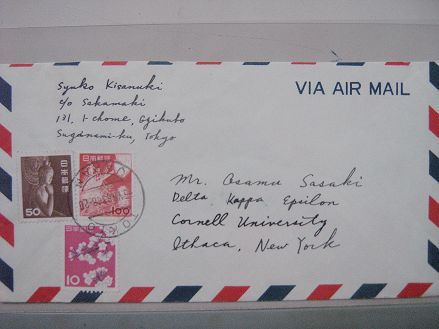 Syuko Kisanuki
c/o Sakamaki
131, 1-chome, Ogikubo
Suganami-ku, Tokyo
VIA AIR MAIL
日本郵便
50
日本郵便
100
日本郵便
10
Mr. Osamu Sasaki
Delta Kappa Epsilon
Cornell University
Ithaca, New York